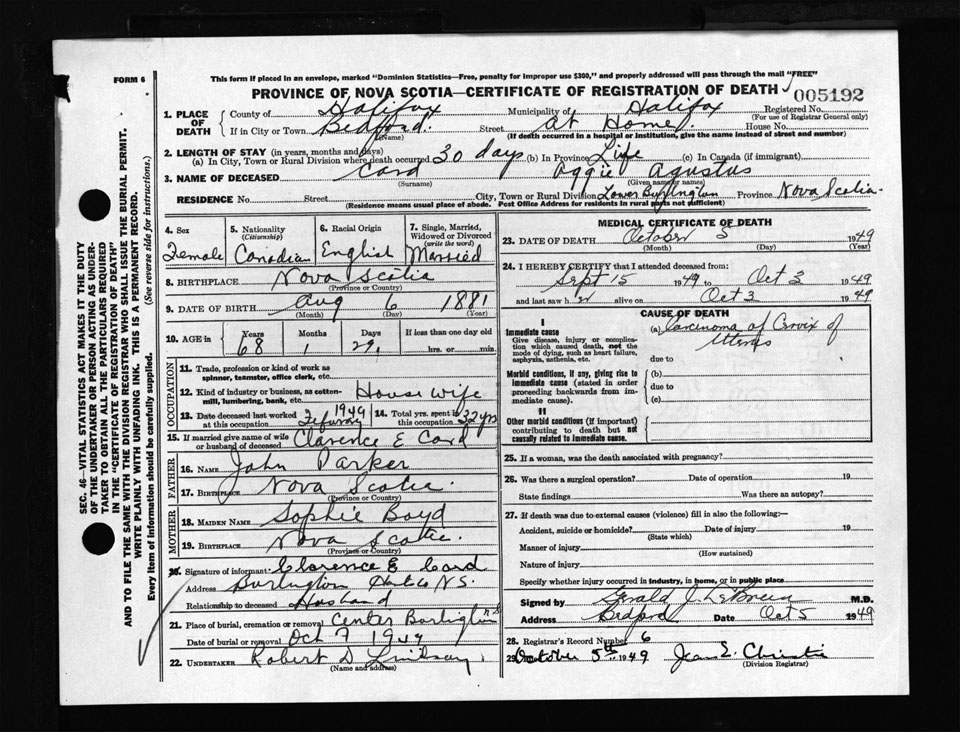 FORM 6
This form if placed in an envelope, marked "Dominion Statistics—Free, penalty for improper use $300," and properly addressed will pass through the mail "FREE"
PROVINCE OF NOVA SCOTIA—CERTIFICATE OF REGISTRATION OF DEATH
005192
1. PLACE OF DEATH
County of Halifax Municipality of Halifax Registered No.
(For use of Registrar General only)
If in City or Town Bedford Street at Home House No.
(Name) (If death occurred in a hospital or institution, give the name instead of street and number)
2. LENGTH OF STAY (in years, months and days)
(a) In City, Town or Rural Division where death occurred 30 days (b) In Province Life (c) In Canada (if immigrant)
3. NAME OF DECEASED Card Aggie Agustus
(Surname) (Given name or names)
RESIDENCE No. Street City, Town or Rural Division Lower Burlington Province Nova Scotia
(Residence means usual place of abode. Post Office Address for residents in rural parts not sufficient)
4. Sex Female
5. Nationality (Citizenship) Canadian
6. Racial Origin English
7. Single, Married, Widowed or Divorced (write the word) Married
8. BIRTHPLACE Nova Scotia
(Province or Country)
9. DATE OF BIRTH Aug 6 1881
(Month) (Day) (Year)
10. AGE in Years Months Days If less than one day old
68 1 29 hrs. or min.
OCCUPATION
11. Trade, profession or kind of work as spinner, teamster, office clerk, etc.
12. Kind of industry or business, as cotton-mill, lumbering, bank, etc. House wife
13. Date deceased last worked at this occupation 1949
14. Total yrs. spent in this occupation 32 yrs
15. If married give name of wife or husband of deceased Clarence E Card
FATHER
16. NAME John Parker
17. BIRTHPLACE Nova Scotia
(Province or Country)
MOTHER
18. MAIDEN NAME Sophie Boyd
19. BIRTHPLACE Nova Scotia
(Province or Country)
20. Signature of informant Clarence E Card
Address Burlington Hants Co N.S.
Relationship to deceased Husband
21. Place of burial, cremation or removal Center Burlington N.S
Date of burial or removal Oct 7 1949
22. UNDERTAKER Robert D Lindsay
(Name and address)
MEDICAL CERTIFICATE OF DEATH
23. DATE OF DEATH October 5 1949
(Month) (Day) (Year)
24. I HEREBY CERTIFY that I attended deceased from:
Sept 15 1949 to Oct 3 1949
and last saw h er alive on Oct 3 1949
CAUSE OF DEATH
I
Immediate cause
Give disease, injury or complication which caused death, not the mode of dying, such as heart failure, asphyxia, asthenia, etc.
(a) Carcinoma of Cervix of Uterus
due to
Morbid conditions, if any, giving rise to immediate cause (stated in order proceeding backwards from immediate cause).
(b)
due to
(c)
II
Other morbid conditions (if important) contributing to death but not causally related to immediate cause.
25. If a woman, was the death associated with pregnancy?
26. Was there a surgical operation? Date of operation 19
State findings Was there an autopsy?
27. If death was due to external causes (violence) fill in also the following:—
Accident, suicide or homicide? Date of injury 19
(State which)
Manner of injury
(How sustained)
Nature of injury
Specify whether injury occurred in industry, in home, or in public place
Signed by Gerald J. LeBrun M.D.
Address Bedford Date Oct 5 1949
28. Registrar's Record Number 6
29. October 5th 1949 Jean E. Christie
(Division Registrar)
SEC. 46—VITAL STATISTICS ACT MAKES IT THE DUTY
OF THE UNDERTAKER OR PERSON ACTING AS UNDER-
TAKER TO OBTAIN ALL THE PARTICULARS REQUIRED
IN THE "CERTIFICATE OF REGISTRATION OF DEATH"
AND TO FILE THE SAME WITH THE DIVISION REGISTRAR WHO SHALL ISSUE THE BURIAL PERMIT.
WRITE PLAINLY WITH UNFADING INK. THIS IS A PERMANENT RECORD.
Every item of information should be carefully supplied. (See reverse side for instructions.)